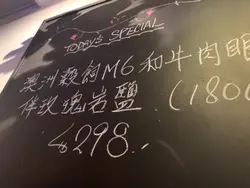 TODAY'S SPECIAL
澳洲穀飼M6和牛肉眼
伴玫瑰岩鹽 (180
$298